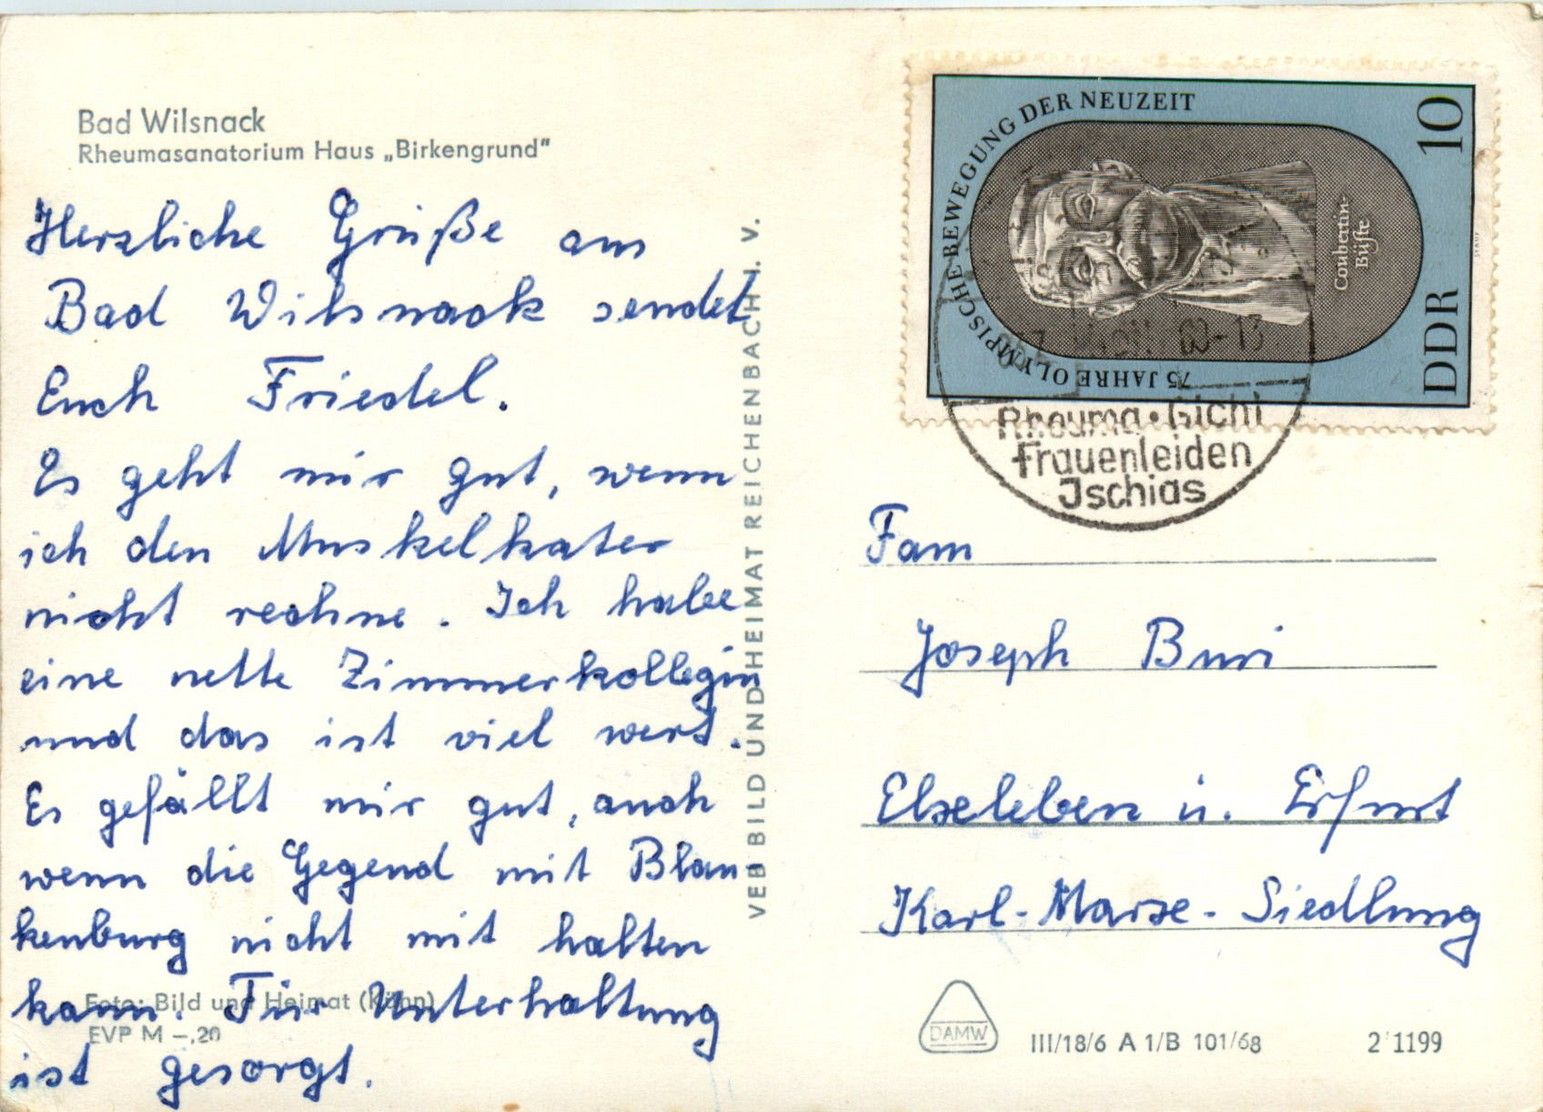 Bad Wilsnack
Rheumasanatorium Haus „Birkengrund"
Herzliche Grüße aus
Bad Wilsnack sendet
Euch Friedel.
Es geht mir gut, wenn
ich den Muskelkater
nicht rechne. Ich habe
eine nette Zimmerkollegin
und das ist viel wert.
Es gefällt mir gut, auch
wenn die Gegend mit Blan-
kenburg nicht mit halten
kann. Für Unterhaltung
ist gesorgt.
Foto: Bild und Heimat
EVP M –,20
VEB BILD UND HEIMAT REICHENBACH I. V.
75 JAHRE OLYMPISCHE BEWEGUNG DER NEUZEIT
Coubertin-
Büste
DDR 10
Rheuma • Gicht
Frauenleiden
Ischias
Fam
Joseph
Elxleben ü. Erfurt
Karl-Marx-Siedlung
DAMW
III/18/6 A 1/B 101/68
2 1199